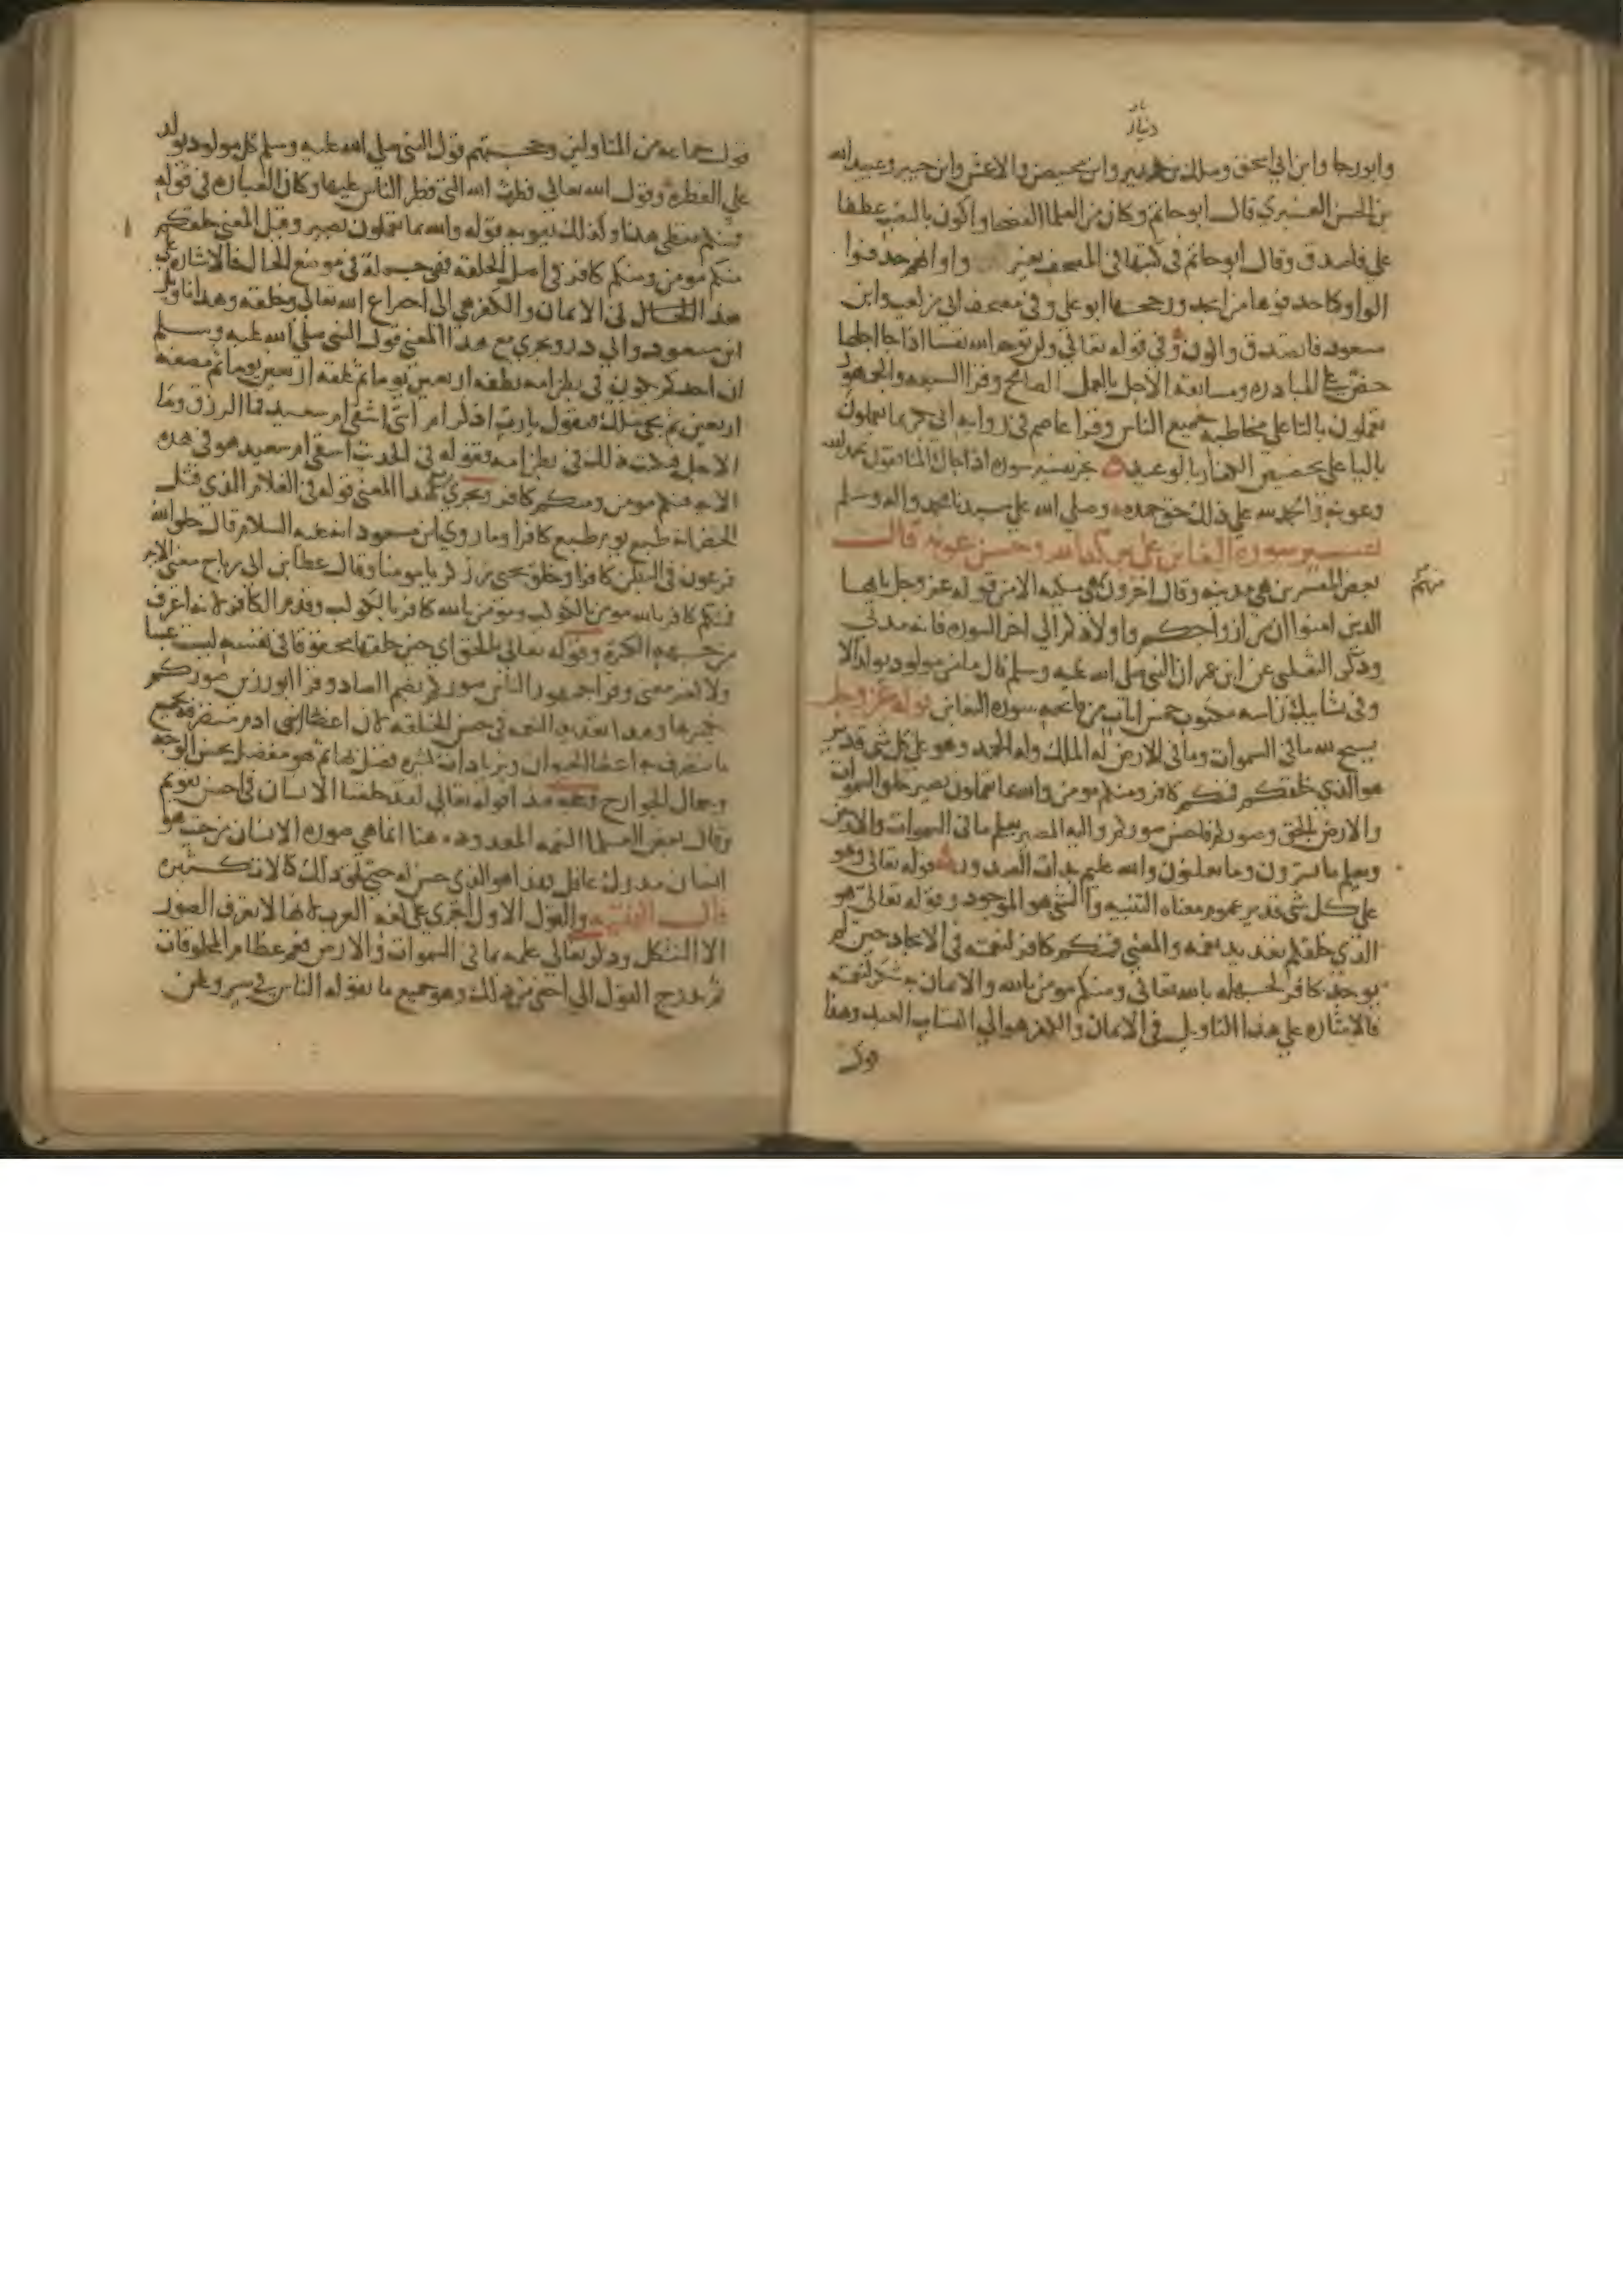 دينار
وابو رجا وابن ابي اسحق ومالك بن دينر وابن محيصن والاعمش وابن جبير وعبيد الله
بن الحسن العنبري قال ابو حاتم وكان من العلما الفصحا واكون بالنصب عطفا
علي فاصدق وقال ابو حاتم في كتبها في المصحف بغير واو انهم حذفوا
الواو كما حذفوها من ابجد ورجحها ابو علي وفي مصحف ابي بن كعب وابن
مسعود فاتصدق واكون وفي قوله تعالي ولن يوخر الله نفسا اذا جا اجلها
حض علي المبادره ومسابقة الاجل بالعمل الصالح وقرا السبعه والجمهور
تعملون بالتا علي مخاطبة جميع الناس وقرا عاصم في رواية ابي بكر بما يعملون
باليا علي تخصيص الكفار بالوعيد تفسير سورة اذا جاك المنافقون بحمد الله
وعونه والحمد لله علي ذلك حق حمده وصلي الله علي سيدنا محمد واله وسلم
تفسير سورة التغابن علي بركة الله وحسن عونه قال
بعض المفسرين هي مدنيه وقال اخرون هي مكيه الا من قوله عز وجل يايها
الذين امنوا ان من ازواجكم واولادكم الي اخر السوره فانه مدني
وذكر الثعلبي عن ابن عمر ان النبي صلي الله عليه وسلم قال ما من مولود يولد الا
وفي تشابيك راسه مكتوب خمس ايات من فاتحة سورة التغابن قوله عز وجل
يسبح لله ما في السموات وما في الارض له الملك وله الحمد وهو علي كل شي قدير
هو الذي خلقكم فمنكم كافر ومنكم مومن والله بما تعملون بصير خلق السموات
والارض بالحق وصوركم فاحسن صوركم واليه المصير يعلم ما في السموات والارض
ويعلم ما تسرون وما تعلنون والله عليم بذات الصدور قوله تعالي وهو
علي كل شي قدير عموم معناه التنبيه والشي هو الموجود وقوله تعالي هو
الذي خلقكم تعديد نعمه والمعني فمنكم كافر لنعمته في الايجاد حين لم
يوجد كافر لجهله بالله تعالي ومنكم مومن بالله والايمان به شكر لنعمته
فالاشاره علي هذا التاويل في الايمان والكفر هو الي اكتساب العبد وهذا
قول
قول جماعه من المتاولين وحجتهم قول النبي صلي الله عليه وسلم كل مولود يولد
علي الفطره وقول الله تعالي فطرة الله التي فطر الناس عليها وكان العباره في قوله
فمنكم تعطي هذا وكذلك يقويه قوله والله بما تعملون بصير وقيل المعني خلقكم
منكم مومن ومنكم كافر في اصل الخلقه فهي جمله في موضع الحال فالاشاره علي
هذا في الايمان والكفر هي الي اختراع الله تعالي وخلقه وهذا تاويل
ابن مسعود وابي ذر ويجري مع هذا المعني قول النبي صلي الله عليه وسلم
ان احدكم يكون في بطن امه نطفه اربعين يوما ثم علقه اربعين يوما ثم مضغه
اربعين ثم يجي ملك فيقول يا رب اذكر ام انثي اشقي ام سعيد فما الرزق وما
الاجل فيكتب ذلك في بطن امه فقوله في الحديث اشقي ام سعيد هو في هذه
الايه فمنكم مومن ومنكم كافر ويجري مع هذا المعني قوله في الغلام الذي قتل
الخضر انه طبع يوم طبع كافرا وما روي ابن مسعود انه عليه السلام قال خلق الله
فرعون في البطن كافرا وخلق يحيى بن زكريا مومنا وقال عطا بن ابي رباح معني الايه
فمنكم كافر بالله مومن بالكوكب ومومن بالله كافر بالكوكب وقدم الكافر لانه اعرف
من جهة الكثرة وقوله تعالي بالحق اي حين خلقها محقوقا في نفسه ليست عبثا
ولا لغير معني وقرا جمهور الناس صوركم بضم الصاد وقرا ابو رزين صوركم
بكسرها وهذا تعديد النعمه في حسن الخلقه لان اعضا بني ادم متصرفه بجميع
ما تتصرف به اعضا الحيوان وبزيادات كثيره فضل بها ثم هو مفضل بحسن الوجه
وجمال الجوارح وحجة هذا قوله تعالي لقد خلقنا الانسان في احسن تقويم
وقال بعض العلما النعمه المعدوده هنا انما هي صورة الانسان من حيث هو
انسان مدرك عاقل فهذا هو الذي حسن له حتى لحق ذلك كمالات كثيره
قال الفقيه والقول الاول اجري علي لغه العرب لانها لا تعرف الصور
الا الشكل وذكر تعالي علمه بما في السموات والارض فعم عظام المخلوقات
ثم تدرج القول الي اخفي من ذلك وهو جميع ما يقوله الناس في سر وعلن